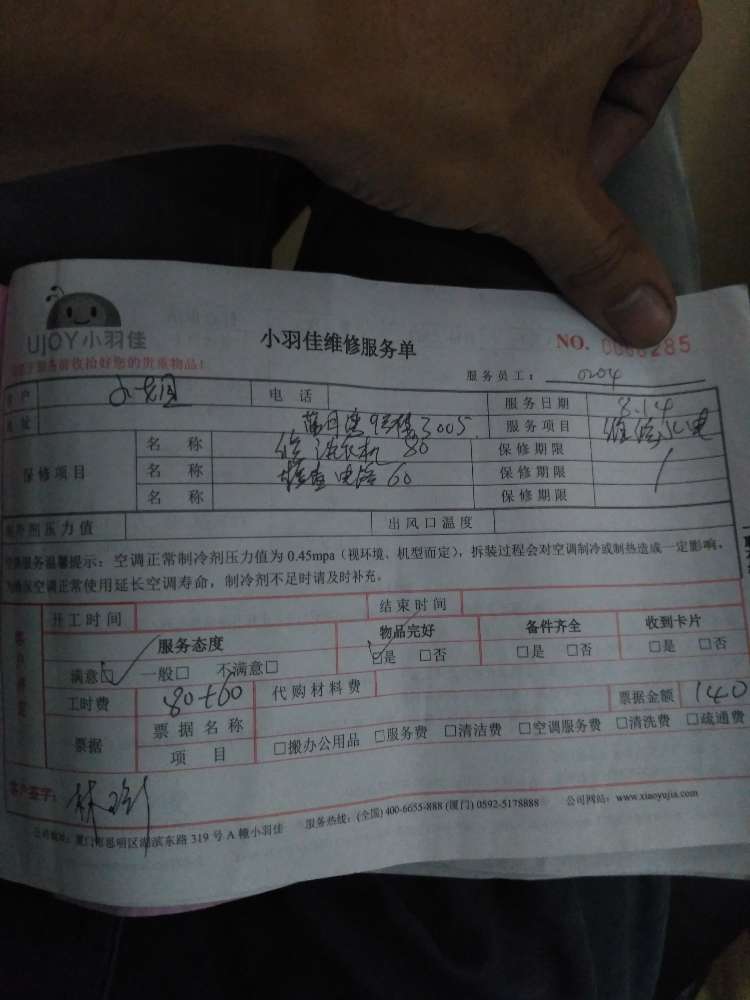 UJOY小羽佳
小羽佳维修服务单
NO. 0008285
收拾好您的贵重物品!
服务员工: 0204
户 电话 服务日期 8.14
址 9号楼3005 服务项目 维修水电
保修项目 名称 修洗衣机 80 保修期限
名称 检查电路 60 保修期限
名称 保修期限
剂压力值 出风口温度
空调服务温馨提示:空调正常制冷剂压力值为 0.45mpa(视环境、机型而定),拆装过程会对空调制冷或制热造成一定影响。
空调正常使用延长空调寿命,制冷剂不足时请及时补充。
开工时间 结束时间
服务态度 物品完好 备件齐全 收到卡片
满意☑ 一般□ 不满意□ ☑是 □否 □是 □否 □是 □否
工时费 80+60 代购材料费 票据金额 140
票据 票据名称
项目 □搬办公用品 □服务费 □清洁费 □空调服务费 □清洗费 □疏通费
客户签字:
公司地址:厦门市思明区湖滨东路 319 号 A 幢小羽佳 服务热线:(全国) 400-6655-888 (厦门) 0592-5178888 公司网站:www.xiaoyujia.com